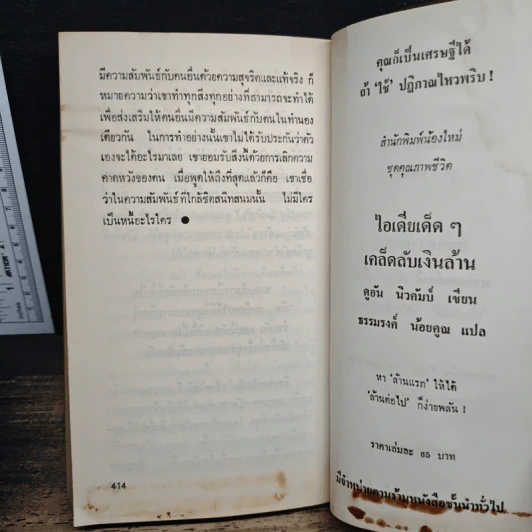 มีความสัมพันธ์กับคนอื่นด้วยความสุจริตและแท้จริง ก็
หมายความว่าเขาทำทุกสิ่งทุกอย่างที่สามารถจะทำได้
เพื่อส่งเสริมให้คนอื่นมีความสัมพันธ์กับตนในทำนอง
เดียวกัน ในการทำอย่างนั้นเขาไม่ได้รับประกันว่าตัว
เองจะได้อะไรมาเลย เขายอมรับสิ่งนี้ด้วยการเลิกความ
คาดหวังของตน เมื่อพูดให้ถึงที่สุดแล้วก็คือ เขาเชื่อ
ว่าในความสัมพันธ์ที่ใกล้ชิดสนิทสนมนั้น ไม่มีใคร
เป็นหนี้อะไรใคร ●
414
คุณก็เป็นเศรษฐีได้
ถ้า 'ใช้' ปฏิภาณไหวพริบ !
สำนักพิมพ์น้องใหม่
ชุดคุณภาพชีวิต
ไอเดียเด็ด ๆ
เคล็ดลับเงินล้าน
ดูอัน นิวคัมบ์ เขียน
ธรรมรงค์ น้อยคูณ แปล
หา 'ล้านแรก' ให้ได้
'ล้านต่อไป' ก็ง่ายพลัน !
ราคาเล่มละ 65 บาท
มีจำหน่ายตามร้านหนังสือชั้นนำทั่วไป